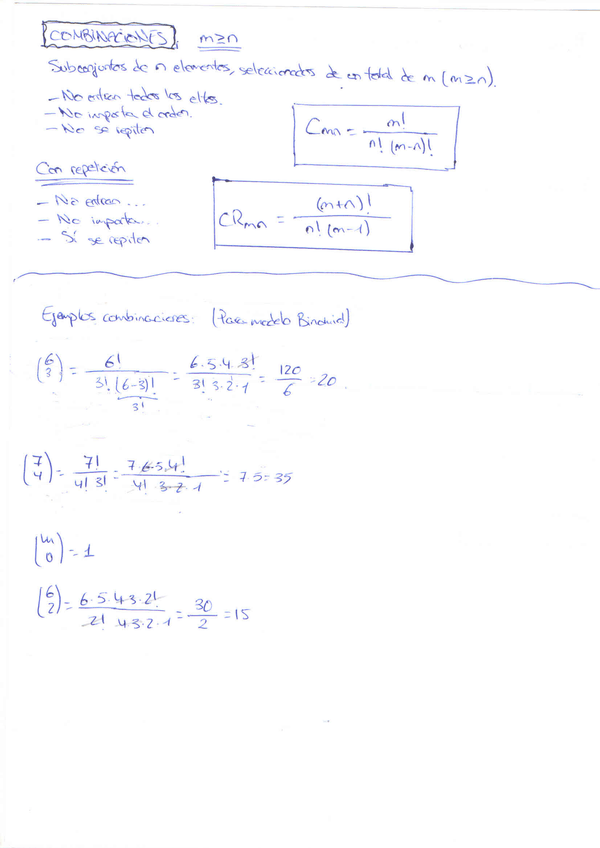 COMBINACIONES, m≥n
Subconjuntos de n elementos, seleccionados de en total de m (m≥n).
- No entran todos los eltos.
- No importa el orden.
- No se repiten
Cmn = m! / n! (m-n)!
Con repetición
- No entran ...
- No importa...
- Sí se repiten
CRmn = (m+n)! / n! (m-1)
Ejemplos combinaciones: (Para modelo Binomial)
(6 3) = 6! / 3! (6-3)! = 6·5·4·3! / 3! 3·2·1 = 120 / 6 = 20
3!
(7 4) = 7! / 4! 3! = 7·6·5·4! / 4! 3·2·1 = 7·5 = 35
(m 0) = 1
(6 2) = 6·5·4·3·2! / 2! 4·3·2·1 = 30 / 2 = 15